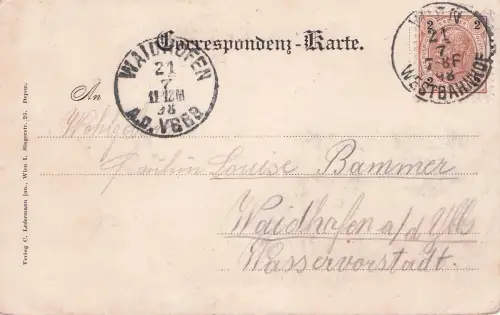 Correspondenz-Karte.
WAIDHOFEN
21
7
11-12M
98
A.D. YBBS
WIEN
2 2
21
7
7-8F
98
WESTBAHNHOF
An
Fräulein Louise Bammer
Waidhofen a/d Ybbs
Wasservorstadt.
Verlag C. Ledermann jun., Wien I. Singerstr. 21. Depon.